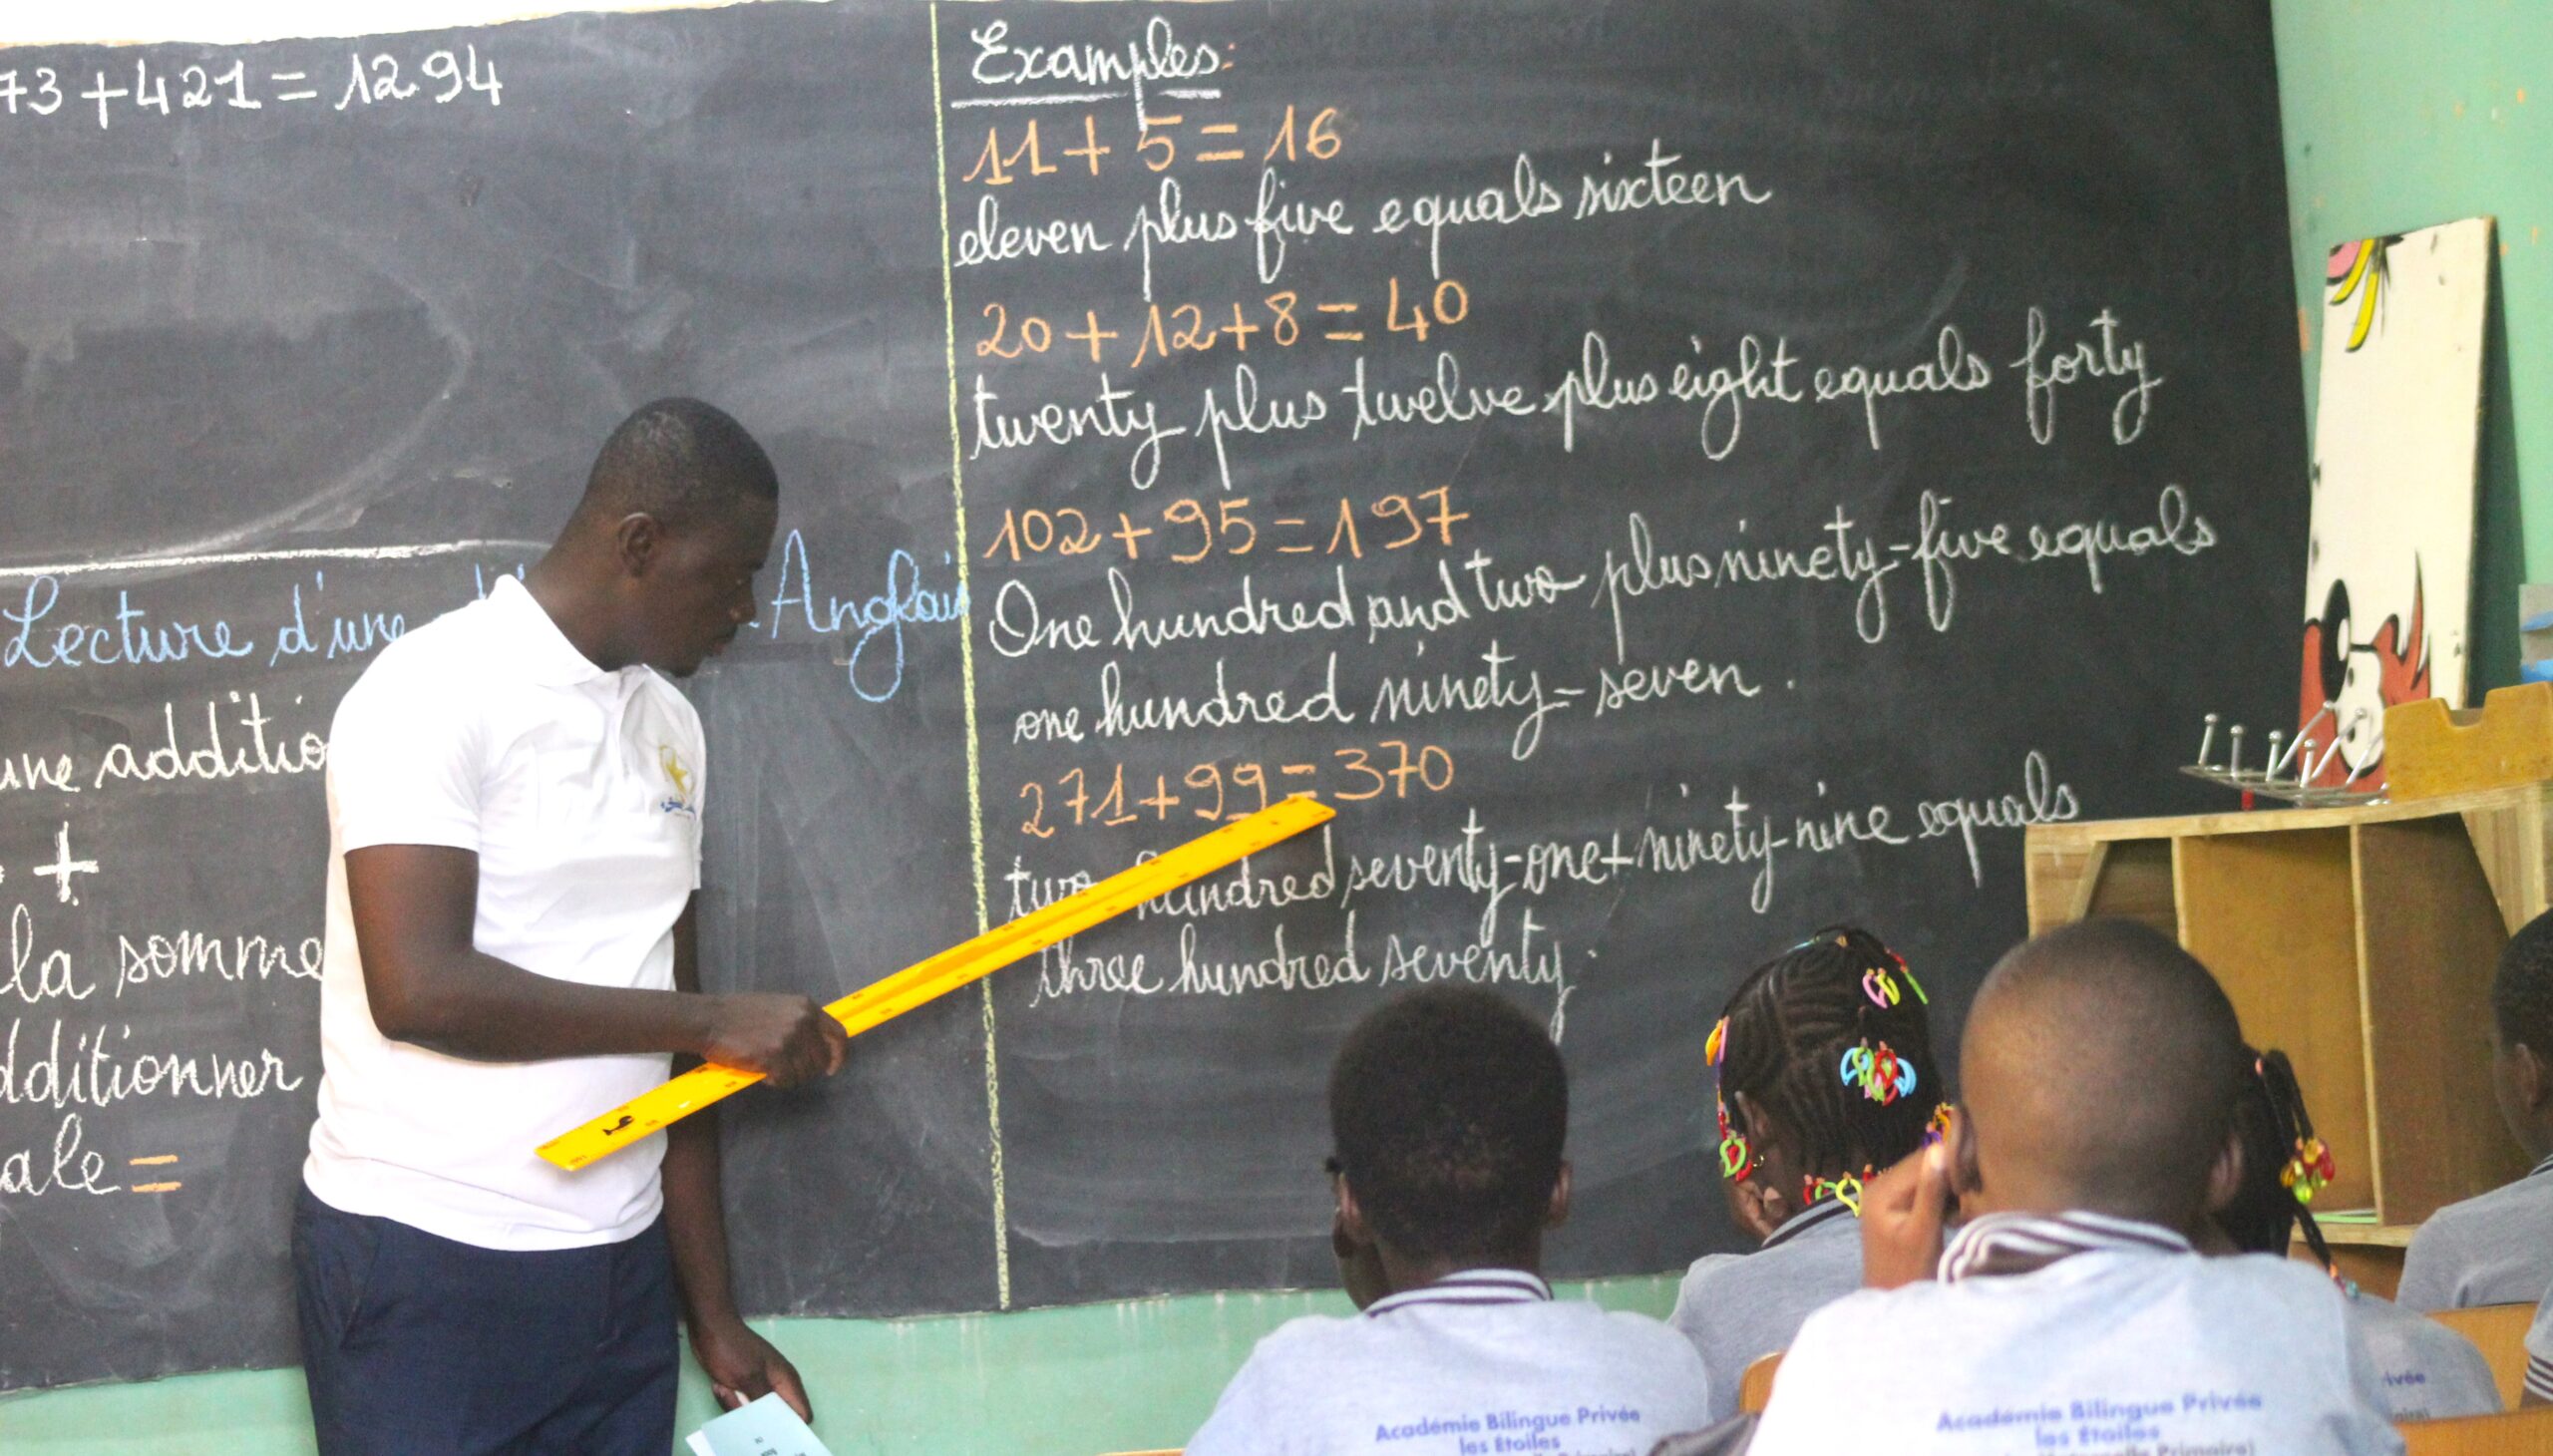 73 + 421 = 1294
Lecture d'une Anglais
une additio
+
la somme
dditionner
ale =
Examples:
11 + 5 = 16
eleven plus five equals sixteen
20 + 12 + 8 = 40
twenty plus twelve plus eight equals forty
102 + 95 = 197
One hundred and two plus ninety-five equals
one hundred ninety-seven.
271 + 99 = 370
two hundred seventy-one + ninety-nine equals
three hundred seventy.
Académie Bilingue Privée
les Étoiles
Académie Bilingue Privée
les Étoiles
Primaire)
ivée